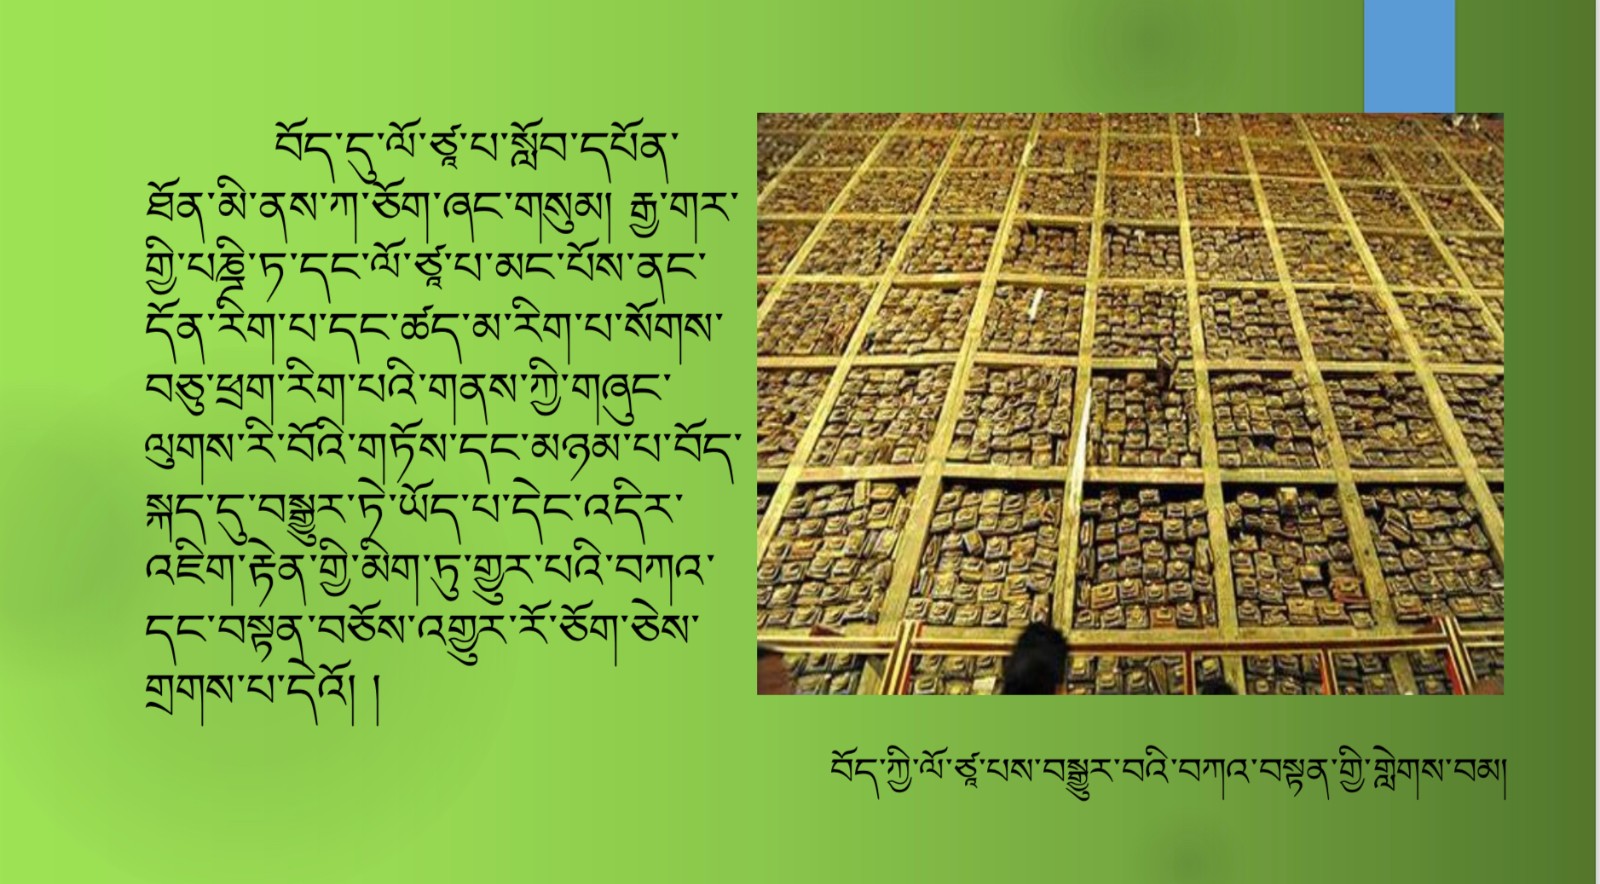 བོད་དུ་ལོ་ཙཱ་པ་སློབ་དཔོན་
ཐོན་མི་ནས་ཀ་ཅོག་ཞང་གསུམ། རྒྱ་གར་
གྱི་པཎྜི་ཏ་དང་ལོ་ཙཱ་པ་མང་པོས་ནང་
དོན་རིག་པ་དང་ཚད་མ་རིག་པ་སོགས་
བཅུ་ཕྲག་རིག་པའི་གནས་ཀྱི་གཞུང་
ལུགས་རི་བོའི་གཏོས་དང་མཉམ་པ་བོད་
སྐད་དུ་བསྒྱུར་ཏེ་ཡོད་པ་དེང་འདིར་
འཇིག་རྟེན་གྱི་མིག་ཏུ་གྱུར་པའི་བཀའ་
དང་བསྟན་བཅོས་འགྱུར་རོ་ཅོག་ཅེས་
གྲགས་པ་དེའོ། །
བོད་ཀྱི་ལོ་ཙཱ་པས་བསྒྱུར་བའི་བཀའ་བསྟན་གྱི་གླེགས་བམ།